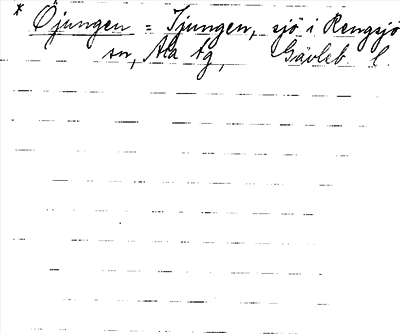 * Öjungen = Tjungen, sjö i Rengsjö
sn, Ala tg, Gävleb l.